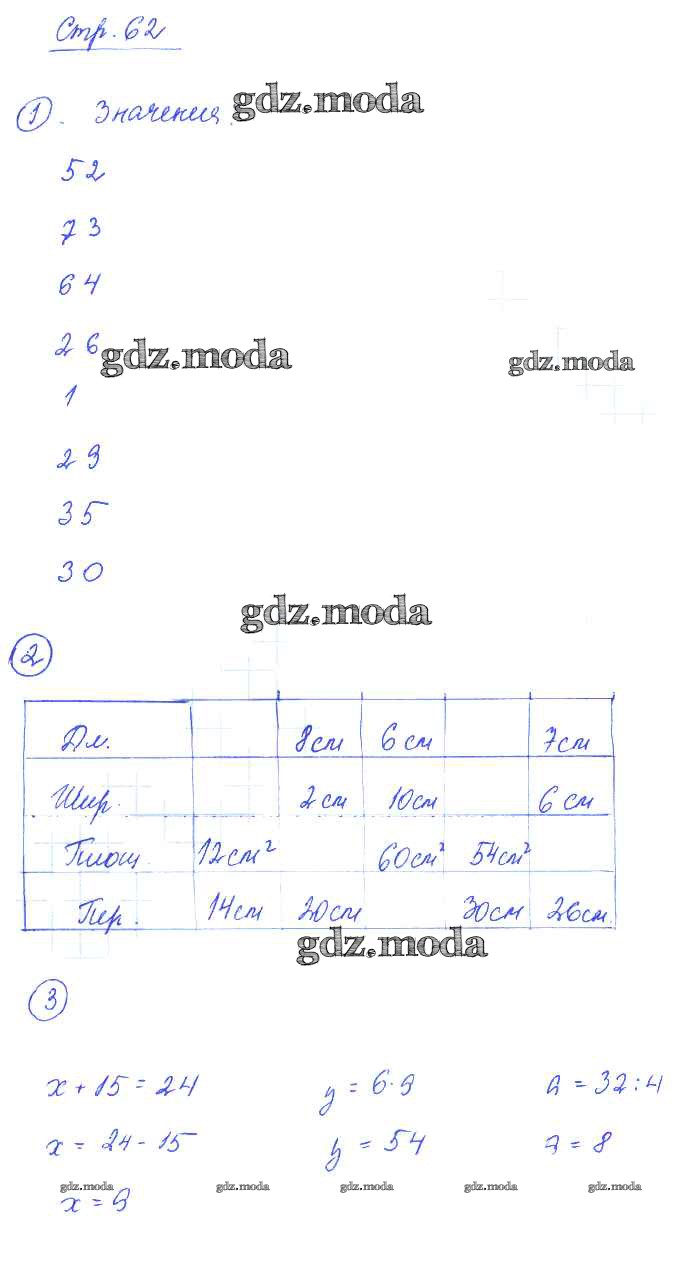 Стр. 62
1. Значения. gdz.moda
52
73
64
26 gdz.moda gdz.moda
1
29
35
30
gdz.moda
2
Дл. 8см 6см 7см
Шир. 2см 10см 6см
Площ. 12см² 60см² 54см²
Пер. 14см 20см 30см 26см
gdz.moda
3
x + 15 = 24 y = 6·9 a = 32:4
x = 24 - 15 y = 54 a = 8
gdz.moda gdz.moda gdz.moda gdz.moda gdz.moda
x = 9